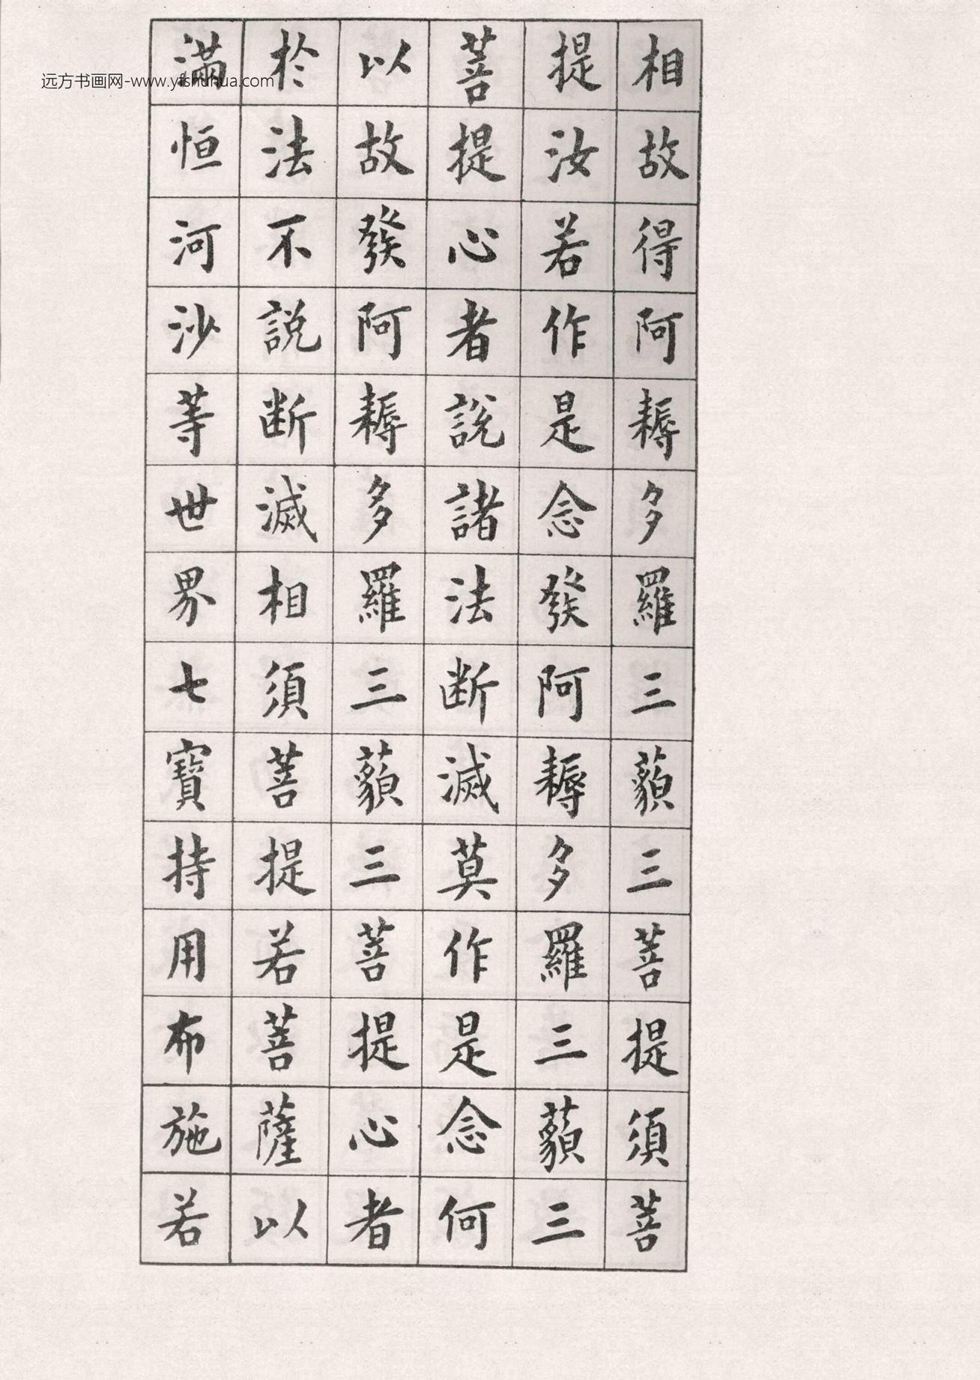 相故得阿耨多羅三藐三菩提須菩
提汝若作是念發阿耨多羅三藐三
菩提心者說諸法断滅莫作是念何
以故發阿耨多羅三藐三菩提心者
於法不說断滅相須菩提若菩薩以
滿恒河沙等世界七寶持用布施若
远方书画网-www.yfshuhua.com